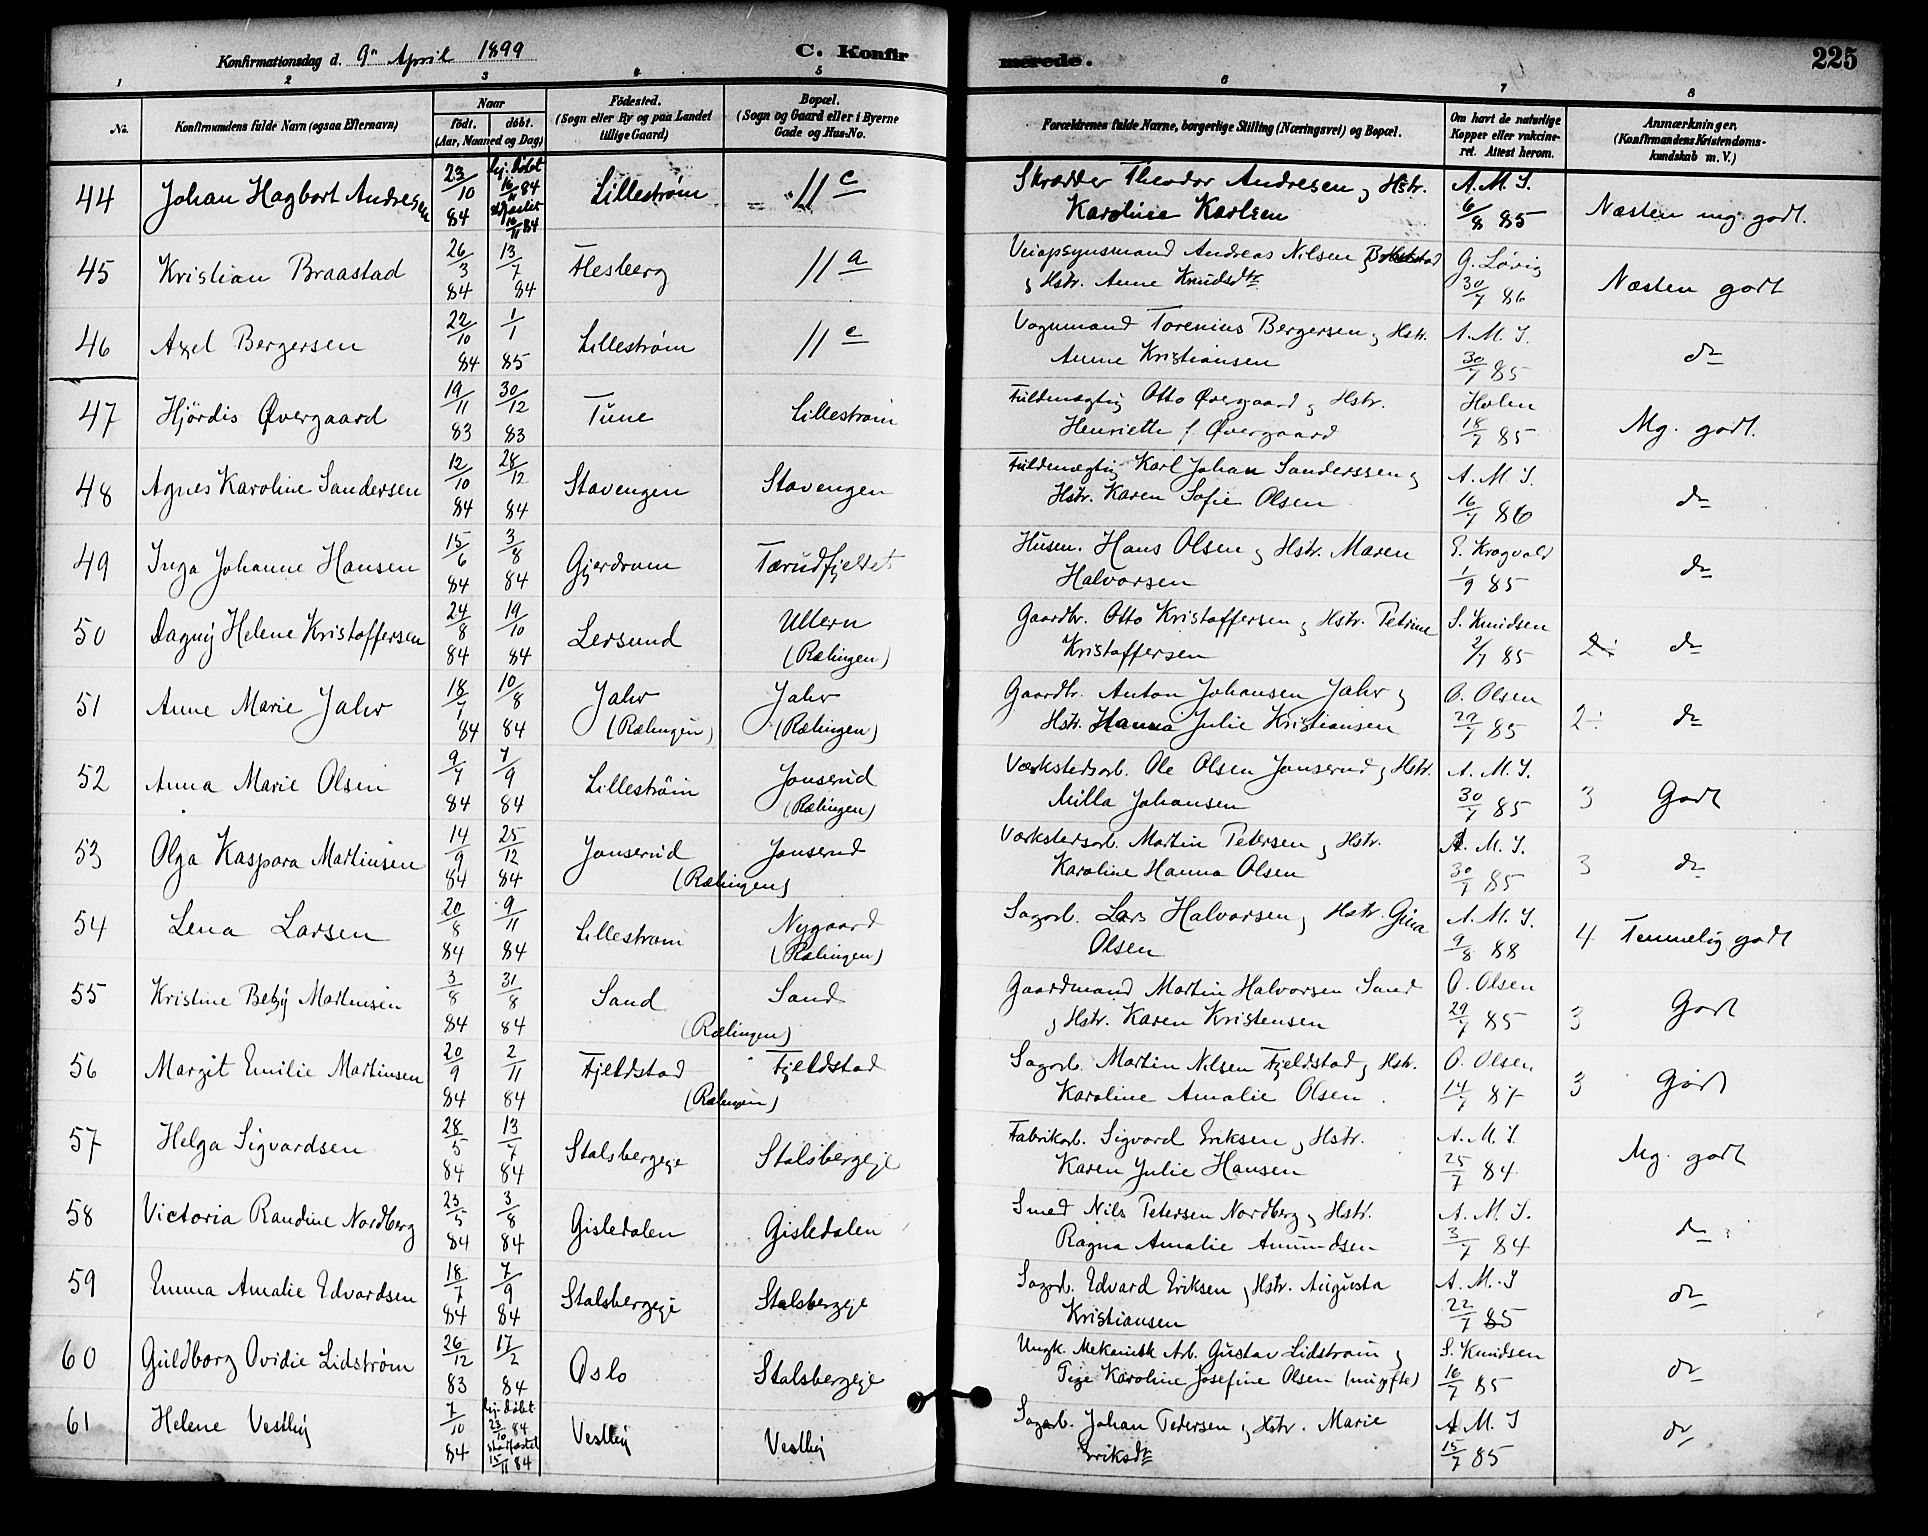 Konfirmationsdag d. 9de April 1899 C. Konfirmerede. 225
1 2 3 4 5 6 7 8
No. Konfirmandens fulde Navn (ogsaa Efternavn) Naar født. døbt. (Aar, Maaned og Dag) Fødested. (Sogn eller By og paa Landet tillige Gaard) Bopæl. (Sogn og Gaard eller i Byerne Gade og Hus-No. Forældrenes fulde Navne, borgerlige Stilling (Næringsvei) og Bopæl. Om havt de naturlige Kopper eller vaccineret. Attest herom. Anmærkninger. (Konfirmandens Kristendomskundskab m. V.)
44 Johan Hagbart Andresen 23/10 84 hj. døbt 16/11 84 stadfæstet 16/11 84 Lillestrøm " 11 c Skrædder Theodor Andresen og Hstr. Karoline Karlsen A. M. S. 6/8 85 Næsten mg. godt.
45 Kristian Braastad 26/3 84 13/7 84 Flesberg 11 a Veiopsynsmand Andreas Nilsen og Hstr. Anne Knudsdtr G. Løvig 30/7 86 Næsten godt
46 Axel Bergersen 22/10 84 1/1 85 Lillestrøm 11 c Vognmand Torenius Bergersen og Hstr. Anne Kristiansen A. M. S. 30/7 85 do
47 Hjördis Øvergaard 19/11 83 30/12 83 Tune Lillestrøm Fuldmægtig Otto Øvergaard og Hstr. Henriette f. Øvergaard Holm 18/7 85 Mg. godt.
48 Agnes Karoline Sandersen 12/10 84 28/12 84 Stavengen Stavengen Fuldmægtig Karl Johan Sanderssen og Hstr. Karen Sofie Olsen A. M S. 16/7 86 do
49 Inga Johanne Hansen 15/6 84 3/8 84 Gjerdrum Tærudfjeldet Husm. Hans Olsen og Hstr. Maren Halvorsen E. Kragvald 1/9 85 do
50 Dagny Helene Kristoffersen 24/8 84 19/10 84 Lersund Ullern (Rælingen) Gaardbr. Otto Kristoffersen og Hstr. Petrine Kristoffersen S. Knudsen 2/7 85 2÷ do
51 Anne Marie Jahr 18/7 84 10/8 84 Jahr (Rælingen) Jahr (Rælingen) Gaardbr. Anton Johansen Jahr og Hstr. Hanna Julie Kristiansen O. Olsen 29/7 85 2÷ do
52 Anna Marie Olsen 9/7 84 7/9 84 Lillestrøm Jonserud (Rælingen) Værkstedsarb. Ole Olsen Jonserud og Hstr. Milla Johansen A. M. S. 30/7 85 3 Godt
53 Olga Kaspara Martinsen 14/9 84 25/12 84 Jonserud Jonserud (Rælingen) Værkstedsarb. Martin Petersen og Hstr. Karoline Hanna Olsen A. M. S. 30/7 85 3 do
54 Lena Larsen 20/8 84 9/11 84 Lillestrøm Nygaard (Rælingen) Sagarb. Lars Halvorsen og Hstr. Gina Olsen A. M. S. 9/8 88 4 Temmelig godt
55 Kristine Betsy Martinsen 3/8 84 31/8 84 Sand Sand (Rælingen) Gaardmand Martin Halvorsen Sand og Hstr. Karen Kristensen O. Olsen 29/7 85 3 Godt
56 Margit Emilie Martinsen 20/9 84 2/11 84 Fjeldstad Fjeldstad (Rælingen) Sagarb. Martin Nilsen Fjeldstad og Hstr. Karoline Amalie Olsen O. Olsen 14/7 87 3 Godt
57 Helga Sigvardsen 28/5 84 13/7 84 Stalsbergeje Stalsbergeje Fabrikarb. Sigvard Eriksen og Hstr. Karen Julie Hansen A. M. S. 25/7 84 Mg. godt
58 Victoria Randine Nordberg 23/5 84 3/8 84 Gisledalen Gisledalen Smed Nils Petersen Nordberg og Hstr. Ragna Amalie Amundsen A. M. S. 3/7 84 do
59 Emma Amalie Edvardsen 18/7 84 7/9 84 Stalsbergeje Stalsbergeje Sagarb. Edvard Eriksen og Hstr. Augusta Kristiansen A. M. S 22/7 85 do
60 Guldborg Ovidie Lidstrøm 26/12 83 17/2 84 Oslo Stalsbergeje Ungk. Mekanisk Arb. Gustav Lidstrøm og Pige Karoline Josefine Olsen (nu gifte) S. Knudsen 16/7 85 do
61 Helene Vestby 7/10 84 hj. døbt 23/10 84 stadfæstet 15/11 84 Vestby Vestby Sagarb. Johan Pedersen og Hstr. Marie Eriksdtr A. M. S 15/7 85 do